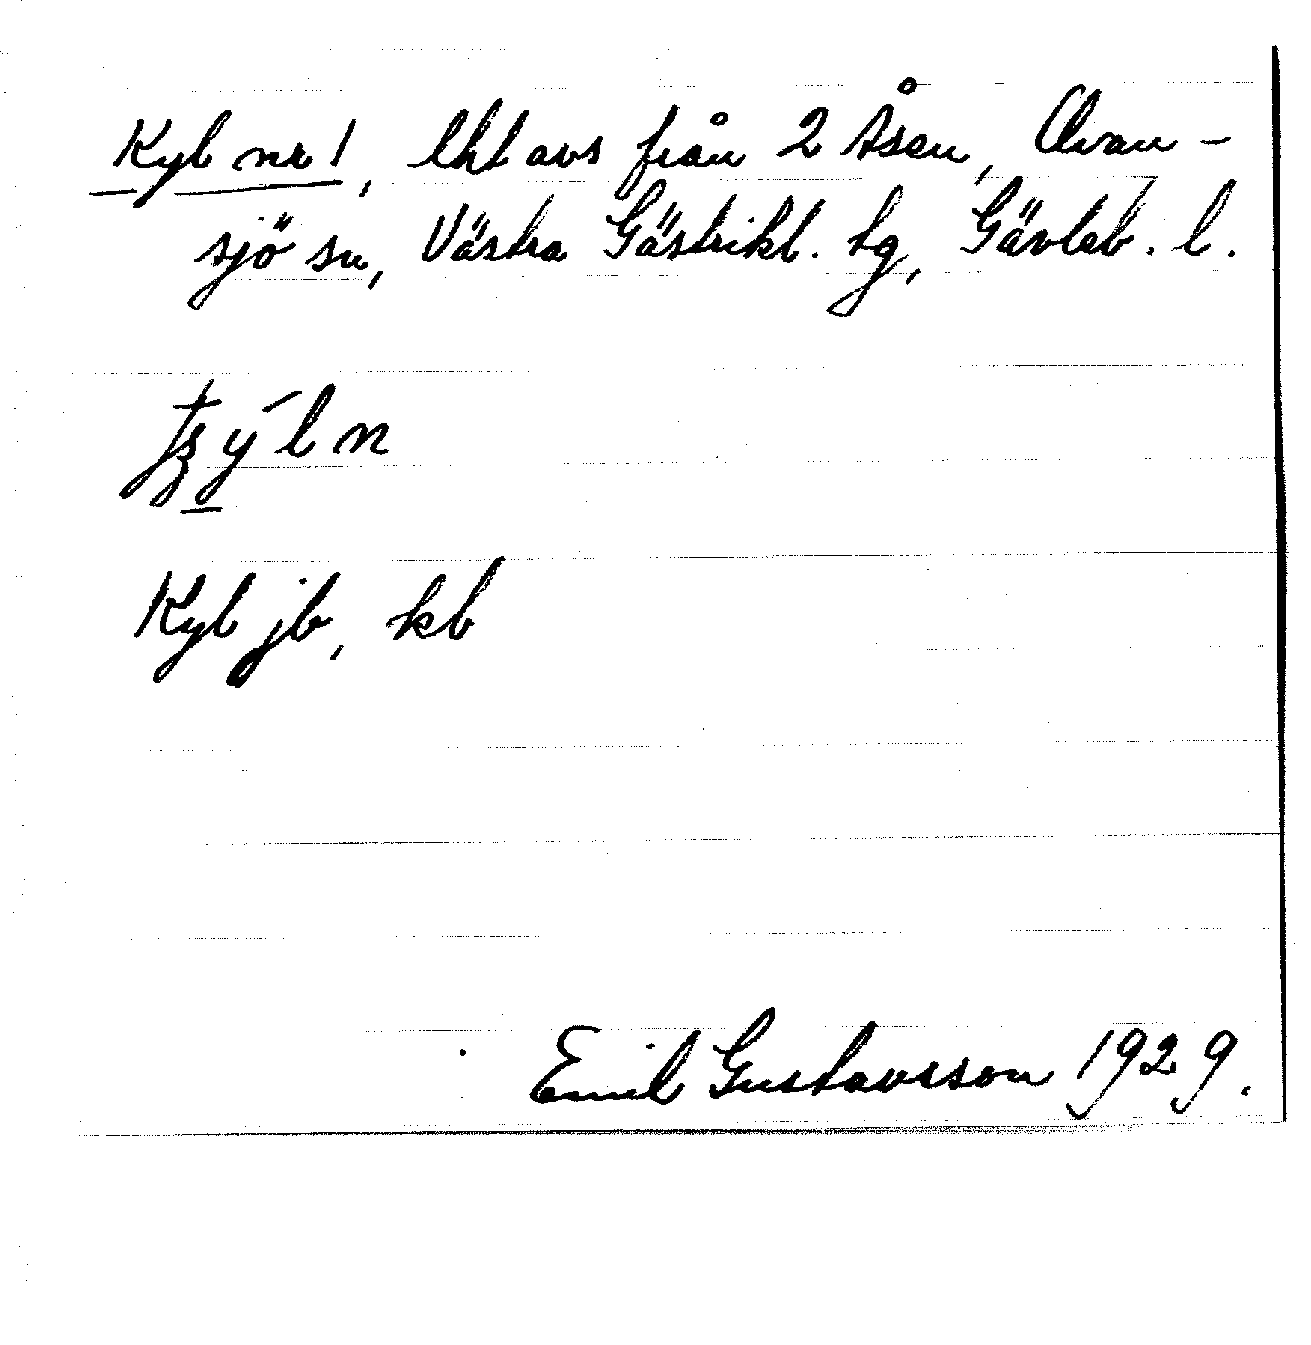 Kyl nr 1, lht avs från 2 Åsen, Ovan-
sjö sn, Västra Gästrikl. tg, Gävleb. l.
Kyl jb, kb
Emil Gustavsson 1929.